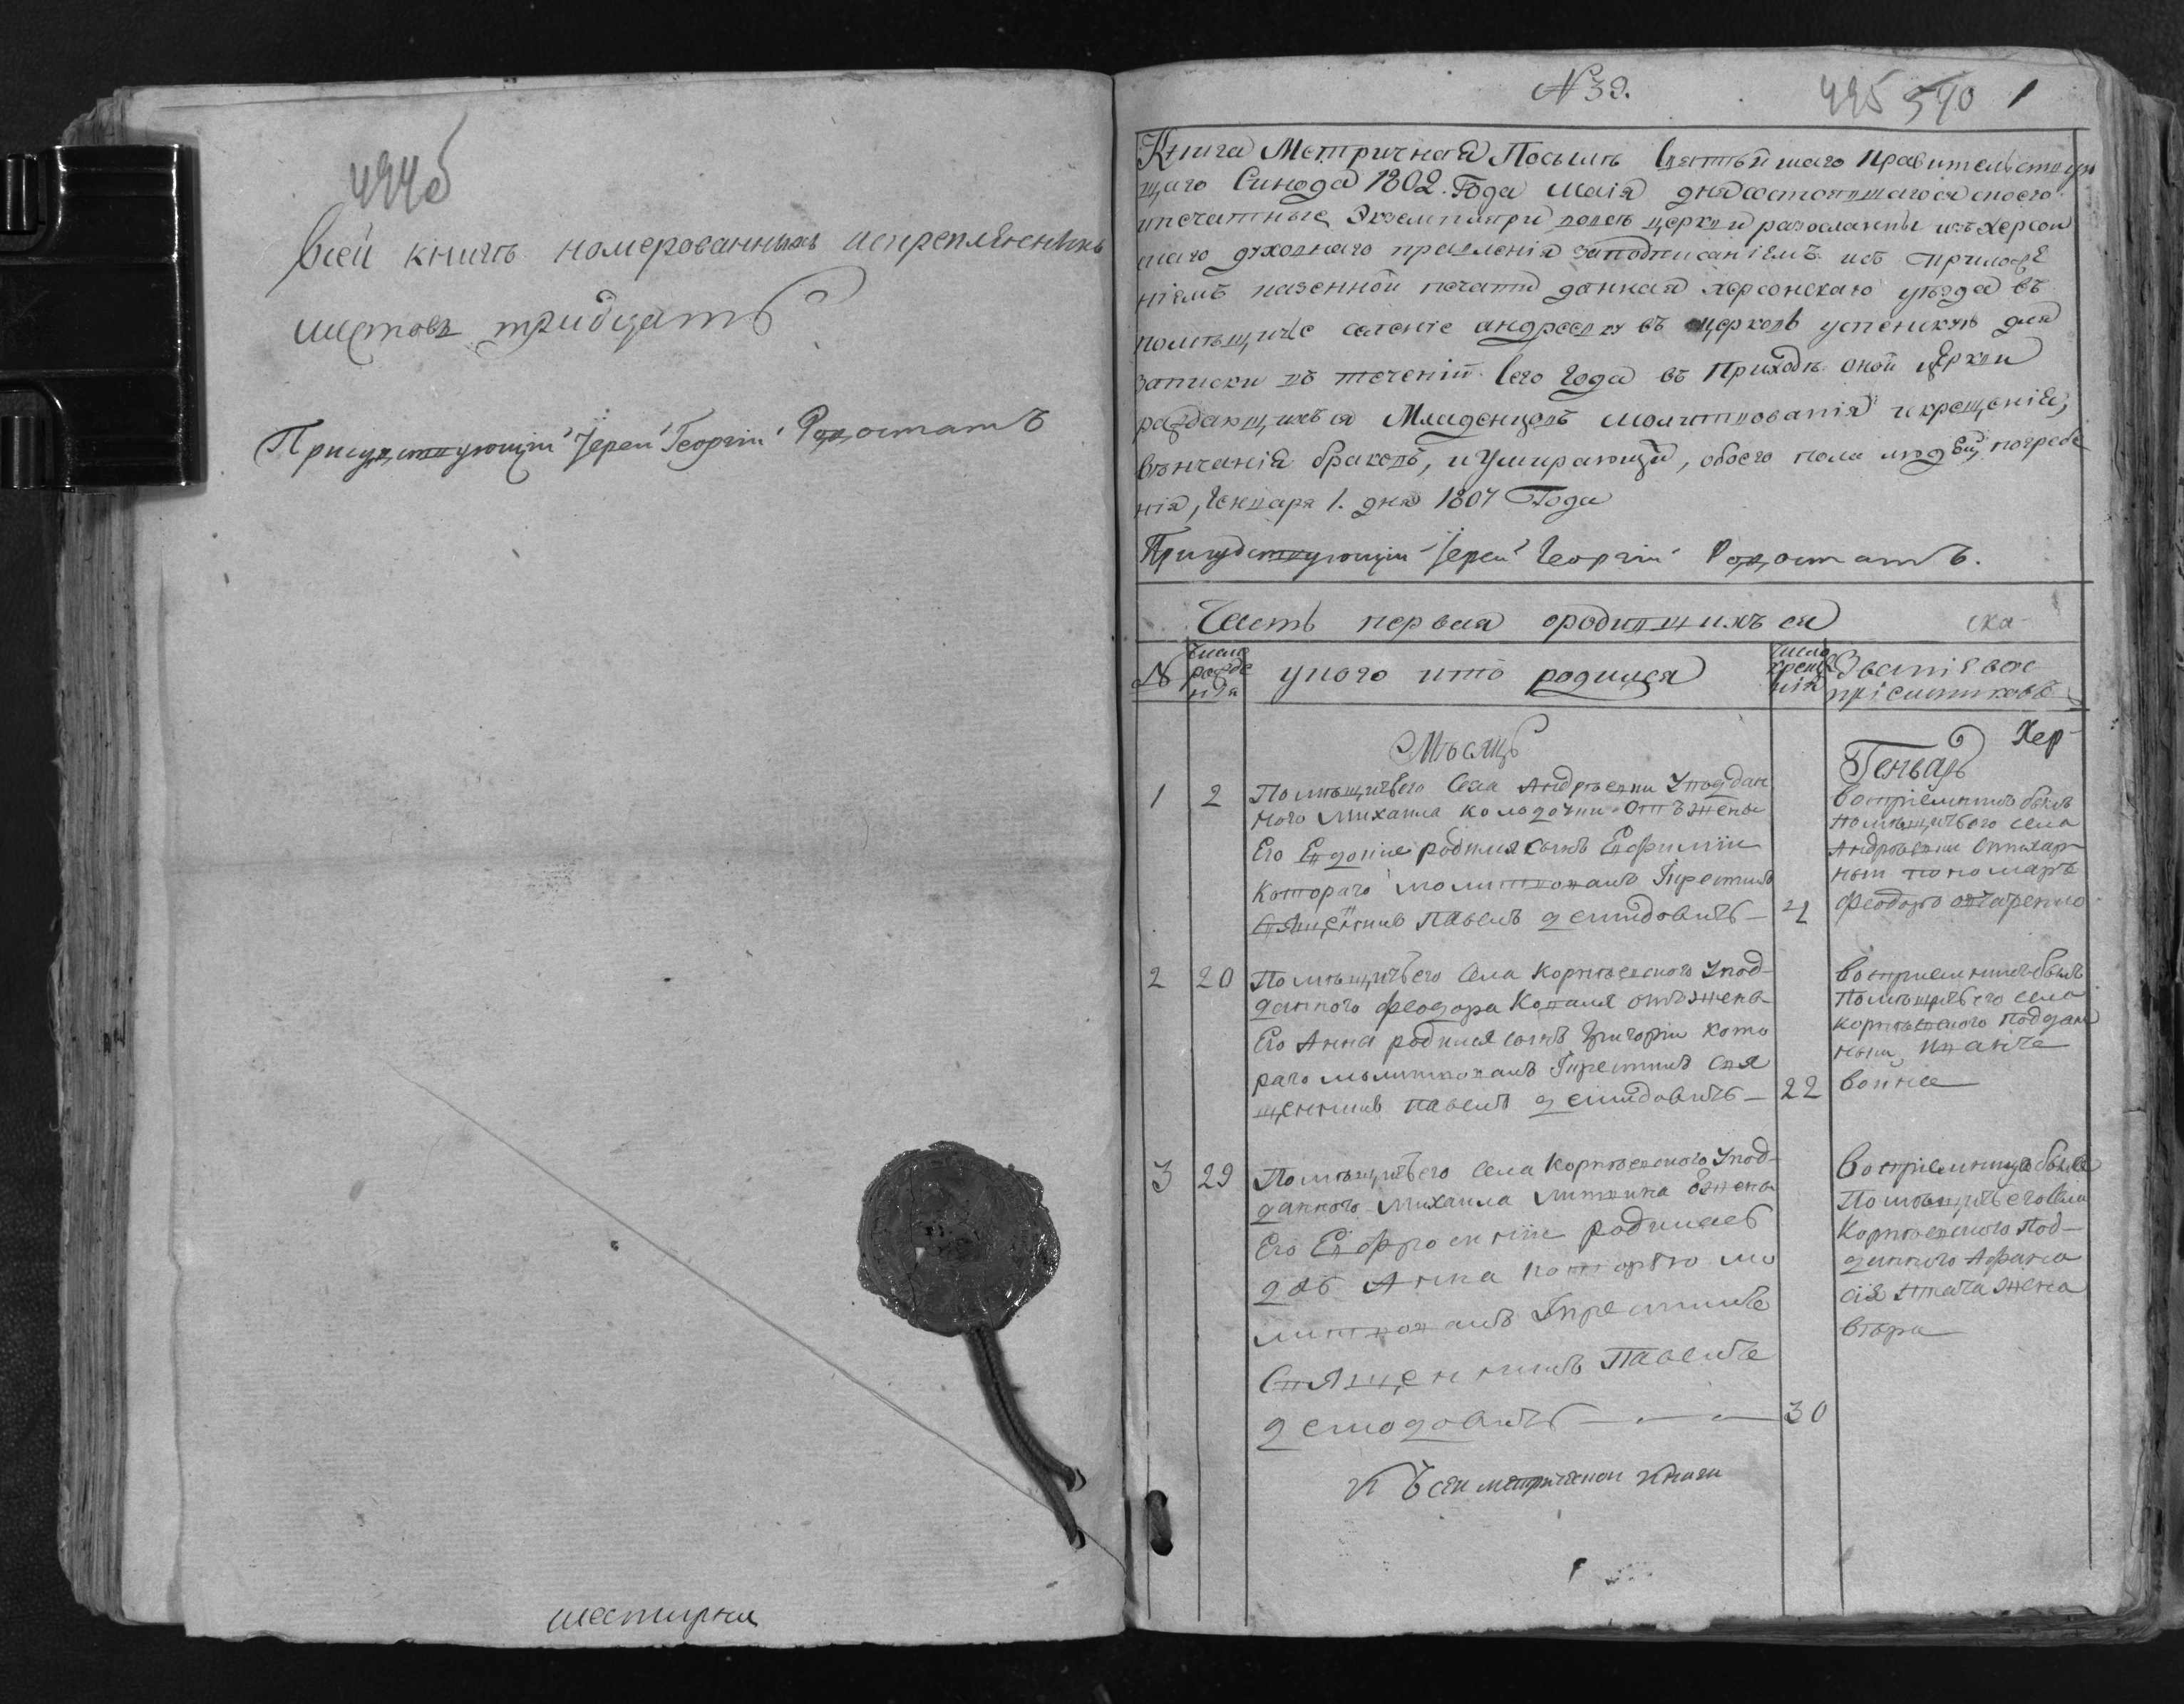 494б
Въ сей книги номерованныхъ искрепленныхъ
листовъ тридцать
Присудствующїй Іерей Георгїй Родостатъ
шестирня
№ 39.
495 540 1
Книга Метричная По силѣ Святѣйшаго Правительствую
щаго Синода 1802. Года Маія дня состоявшагося и по его
печатные Экземпляри во всѣ церкви разосланны изъ Херсон
скаго духовнаго правленїя за подписанїемъ и съ приложе
нїемъ казенной печати данная херсонскаго уѣзда въ
помѣщичье селенїе андреевку въ церковь успенскую для
записки въ теченїй Сего Года въ Приходѣ оной церкви
раждающихъся Младенцовъ молитвованїя и крещенїе,
вѣнчанїя браковъ, и Умирающих, обоего пола людей, погребе
нїя, Генваря 1. дня 1807 Года
Присудствующїй Іерей Георгїй Родостатъ.
Часть первая о родившихъся
ска-
№ Число рожде нїя у кого кто родился Число креще нїя Званїе вос прїемниковъ
Мѣсяцъ Генварь
Хер-
1 2 Помѣщичьего Села Андрѣевки У поддан
ного Михаила Колодочки Отъ жены
Его Евдокїи родился сынъ Евфимїй
Которагѡ молитвовалъ И крестилъ
Священникъ Павелъ демидовичъ — 21
Воспріемникъ былъ
помѣщичього села
Андрѣевки стихар
ный пономарь
Феодоръ овчаренко
2 20 Помѣщичьего Села Корнѣевского У под-
данного Феодора Коваля отъ жены
Его Анна родился сынъ Григорїй кото
раго молитвовалъ И крестилъ свя
щенникъ павелъ демидовичъ — 22
Воспріемникъ былъ
Помѣщичьего села
корнѣевского поддан
ный
3 29 Помѣщичьего Села Корнѣевского У под-
данного Михаила Литвина жены
Его Евфросинїи родилась
дочь Анна которую мо
литвовалъ И крестилъ
Священникъ Павелъ
демидовичъ — 30
Воспрїемница была
Помѣщичьего Села
Корнѣевского Под-
данного Афана
сїя Ткача жена
Въ сей метрической книги